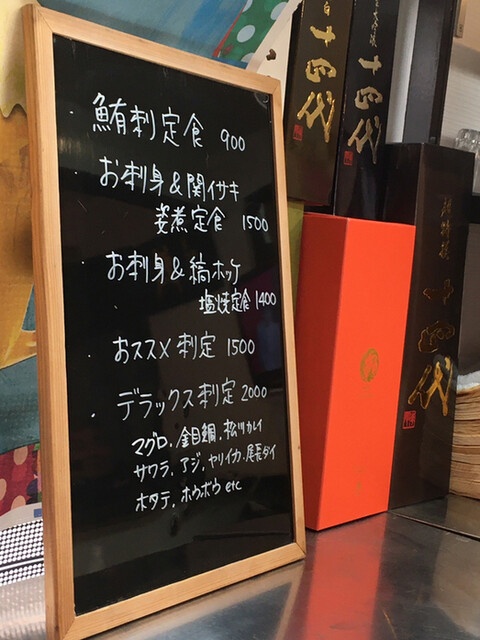 ・鮪刺定食 900
・お刺身&関イサキ
姿煮定食 1500
・お刺身&縞ホッケ
塩焼定食 1400
・おススメ刺定 1500
・デラックス刺定 2000
マグロ、金目鯛、松川カレイ
サワラ、アジ、ヤリイカ、尾長ダイ
ホタテ、ホウボウ etc
十四代
十四代
十四代